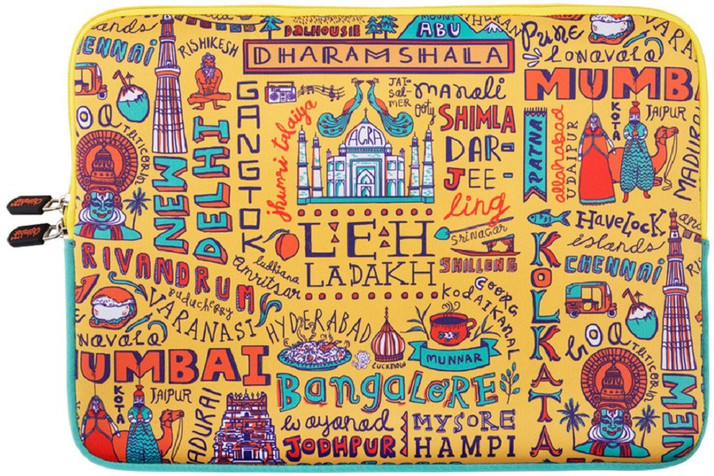 DALHOUSIE
MOUNT
ABU
DHARAMSHALA
CHENNAI
RISHIKESH
NEW
DELHI
GANGTOK
jhumri talaiya
AGRA
JAI
SAL-
MER
manali
ooty
SHIMLA
DAR-
JEE
ling
PATNA
allahabad
UDAIPUR
Pune
Lonavala
MUMB
KOTA
JAIPUR
MADURAI
GOA
TRIVANDRUM
Puducherry
VARANASI
Amritsar
ludhiana
LEH
LADAKH
SRINAGAR
SHILLONG
COORG
KODAIKANAL
KOLKATA
Havelock
islands
CHENNAI
GOA
NEW
onavala
UMBAI
KOTA
JAIPUR
ADURAI
HYDERABAD
LUCKNOW
MUNNAR
Bangalore
wayanad
JODHPUR
MYSORE
HAMPI